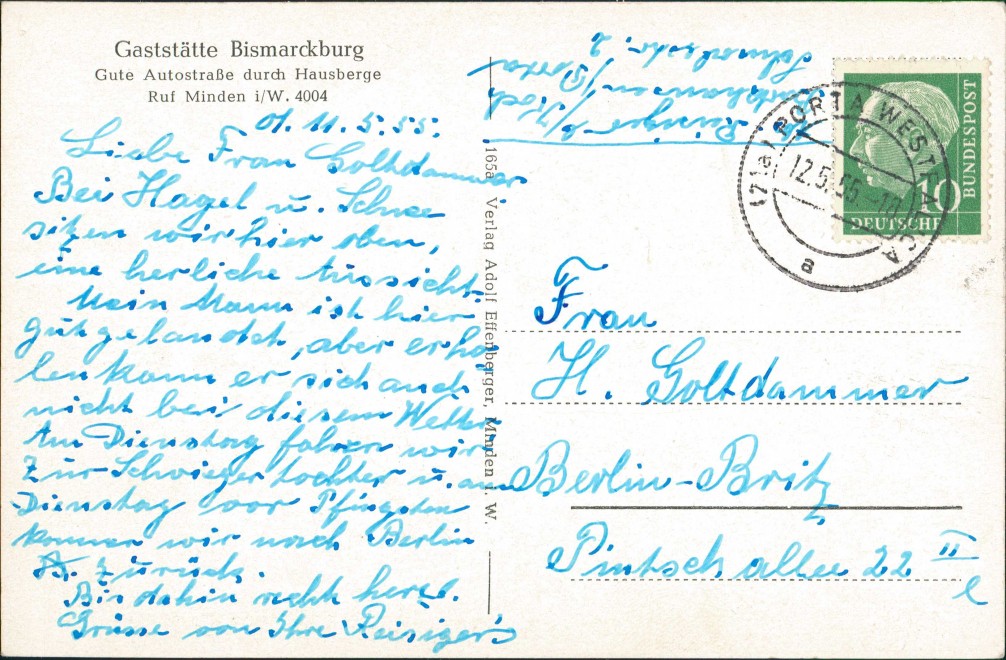 Gaststätte Bismarckburg
Gute Autostraße durch Hausberge
Ruf Minden i/W. 4004
d. 11.5.55.
Liebe Frau Goltdammer
Bei Hagel u. Schnee
sitzen wir hier oben,
eine herliche Aussicht.
Mein Mann ist hier
gut gelandet, aber erho
len kann er sich auch
nicht bei diesem Wetter
Am Dienstag fahren wir
zur Schwiegertochter u. am
Dienstag vor Pfingsten
kommen wir nach Berlin
zurück.
Bis dahin recht herzl.
Grüsse von Ihre Reisiger's
165a Verlag Adolf Effenberger, Minden i. W.
(21a) PORTA WESTFALICA
12.5.55
a
DEUTSCHE BUNDESPOST
10
Frau
H. Goltdammer
Berlin-Britz
Pintschallee 22 II
l